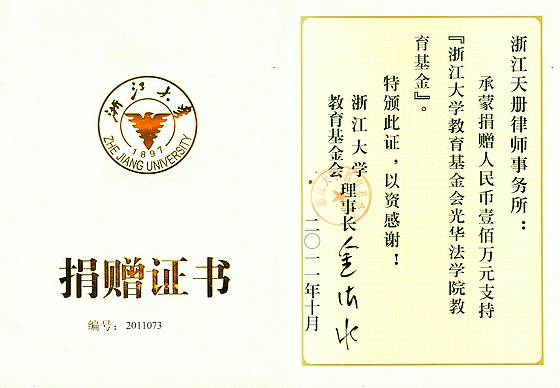 浙江大學
1897
ZHE JIANG UNIVERSITY
捐赠证书
编号：2011073
浙江天册律师事务所：
承蒙捐赠人民币壹佰万元支持
『浙江大学教育基金会光华法学院教
育基金』。
特颁此证，以资感谢！
浙江大学
教育基金会
理事长
二〇一一年十月